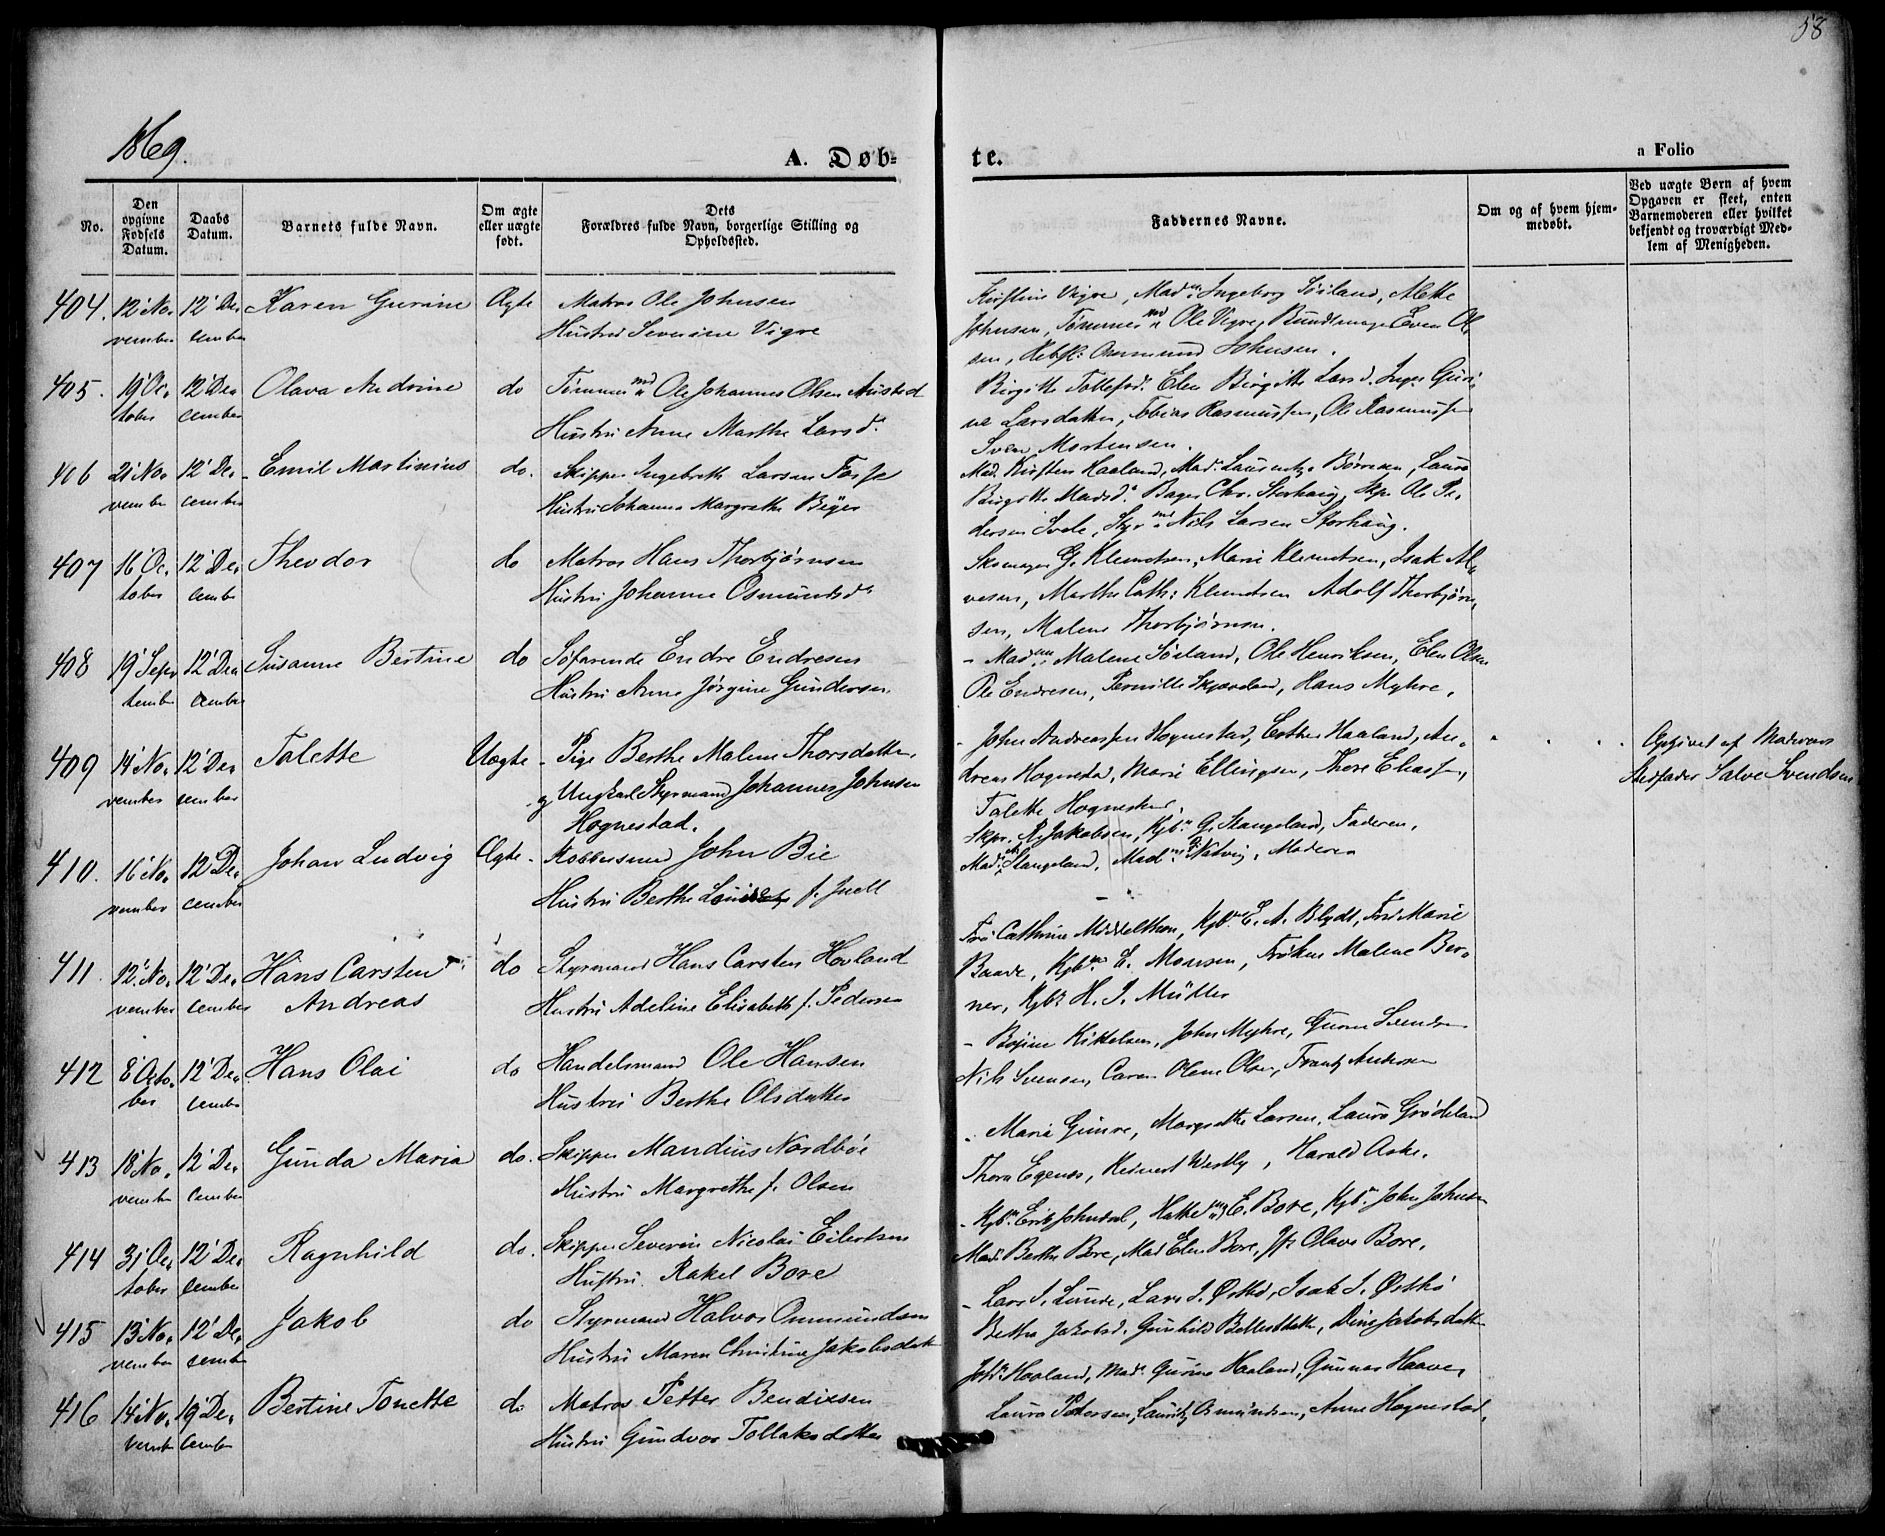 58
1869.
A. Døb-
te.
a Folio
No.
Den opgivne Fødsels Datum.
Daabs Datum.
Barnets fulde Navn.
Om ægte eller uægte født.
Dets Forældres fulde Navn, borgerlige Stilling og Opholdssted.
Faddernes Navne.
Om og af hvem hjemmedøbt.
Ved uægte Børn af hvem Opgaven er skeet, enten Barnemoderen eller hvilket bekjendt og troværdigt Medlem af Menigheden.
404. 12' No- 12' De- Karen Gurine Ægte Matros Ole Johnsen
vember cember Hustru Severine Vigre
Kirstine Vigre, Madm Ingeborg Söiland, Alette
Johnsen, Tømmermd Ole Vigre, Bundtmager Even Ol-
sen, Rebsl: Osmund Johnsen.
405. 19' Oc- 12' De- Olava Andrine do Tømmermd Ole Johannes Olsen Austad
tober cember Hustru Anne Marthe Larsd.
Birgitte Tollefsd. Elen Birgitte Larsd. Inger Guri-
ne Larsdatter, Tobias Rasmussen, Ole Rasmussen
Svend Mortensen.
406 21' No- 12' De- Emil Martinius do. Skipper Ingebreth Larsen
vember cember Hustru Johanne Margrethe
Mad. Kirsten Haaland, Madm Lauentze Børresen, Laura
Birgitte Madsd. Bager Chr. Storhaug, Skpr Ole Pe-
dersen Svele, Styrmd Nils Larsen Storhaug.
407 16' Oc- 12' De- Theodor do Matros Hans Thorbjørnsen
tober cember Hustru Johanne Osmundsd.
Skomager G. Klemetsen, Marie Klemetsen, Isak Al-
vesen, Marthe Cath: Klemetsen Adolf Thorbjørn-
sen, Malene Thorbjørnsen.
408 19' Sep- 12' De- Susanne Bertine do Søfarende Endre Endresen
tember cember Hustru Anne Jørgine Gundersen.
- Madm Malene Söiland, Ole Henriksen, Elen Olsen
Ole Endresen, Pernille Skjæveland, Hans Myhre.
409 14' No- 12' De- Talette Uægte - Pige Berthe Malene Thorsdatter,
vember cember og Ungkarl Styrmand Johannes Johnsen
Hognestad.
- John Andreassen Hognestad, Esther Haaland, An-
dreas Hognestad, Marie Ellingsen, Thore Eliassen,
Talette Hognestad.
Opgivet af Moderens
Stedfader Salve Svendsen
410. 16' No- 12' De- Johan Ludvig Ægte - Kobbersmed John Bie
vember cember Hustru Berthe f. Juell
Skpr. R. Jakobsen, Kjbm G. Stangeland, Faderen,
Madm Stangeland, Madm Natvig, Moderen
411. 12' No- 12' De- Hans Carsten do Styrmand Hans Carsten Hovland
vember cember Andreas Hustru Adeline Elisabeth f. Pedersen
Frö Cathrine Middelthon, Kjbm E. A. Blydt, Frø Marie
Baade, Kjbm E. Monsen, Frøken Malene Ber-
ner, Kjbm H. I. Müller
412 8' Octo- 12' De- Hans Olai do Handelsmand Ole Hansen
ber cember Hustru Berthe Olsdatter
- Kittelsen, John Myhre, Svendsen
Nils Svensen, Caren Olene Olsen, Frantz Andersen
413 18' No- 12' De- Gunda Maria do. Skipper Mandius Nordböe
vember cember Hustru Margrethe f. Olsen
- Maria Gunvre, Margrethe Larsen, Laura Grødeland
Thora Egenes, Westby, Harald Aske.
414 31' Oc- 12' De- Ragnhild do. Skipper Severin Nicolai Eilertsen
tober cember Hustru Rakel Bore
- Kjbm Erik Johnsen, E. Bore, Kjbm John Johnsen
Mad. Berthe Bore, Mad Elen Bore, Jfr Olava Bore.
415 13' No- 12' De- Jakob do Styrmand Halvor Ommundsen
vember cember Hustru Maren Christine Jakobsdatter
- Lars I. Lunde, Lars I. Østbö, Isak I. Østbö
Betha Jakobsd. Gunhild Dine Jakobsdatter
416 14' No- 19' De- Bertine Tonette do Matros Petter Bendixsen
vember cember Hustru Gundvor Tollaksdatter
Haaland, Madm Gurine Haaland, Gunner Haaver,
Laura Petersen, Lauritz Osmundsen, Anne Hognestad.